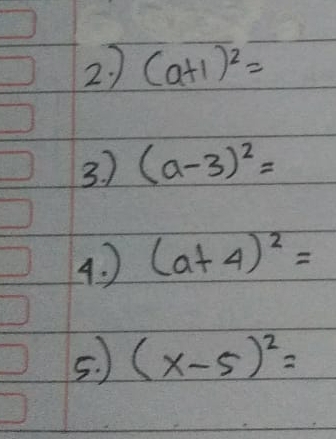 2.) (a+1)²=
3.) (a-3)²=
4.) (a+4)²=
5.) (x-5)²=